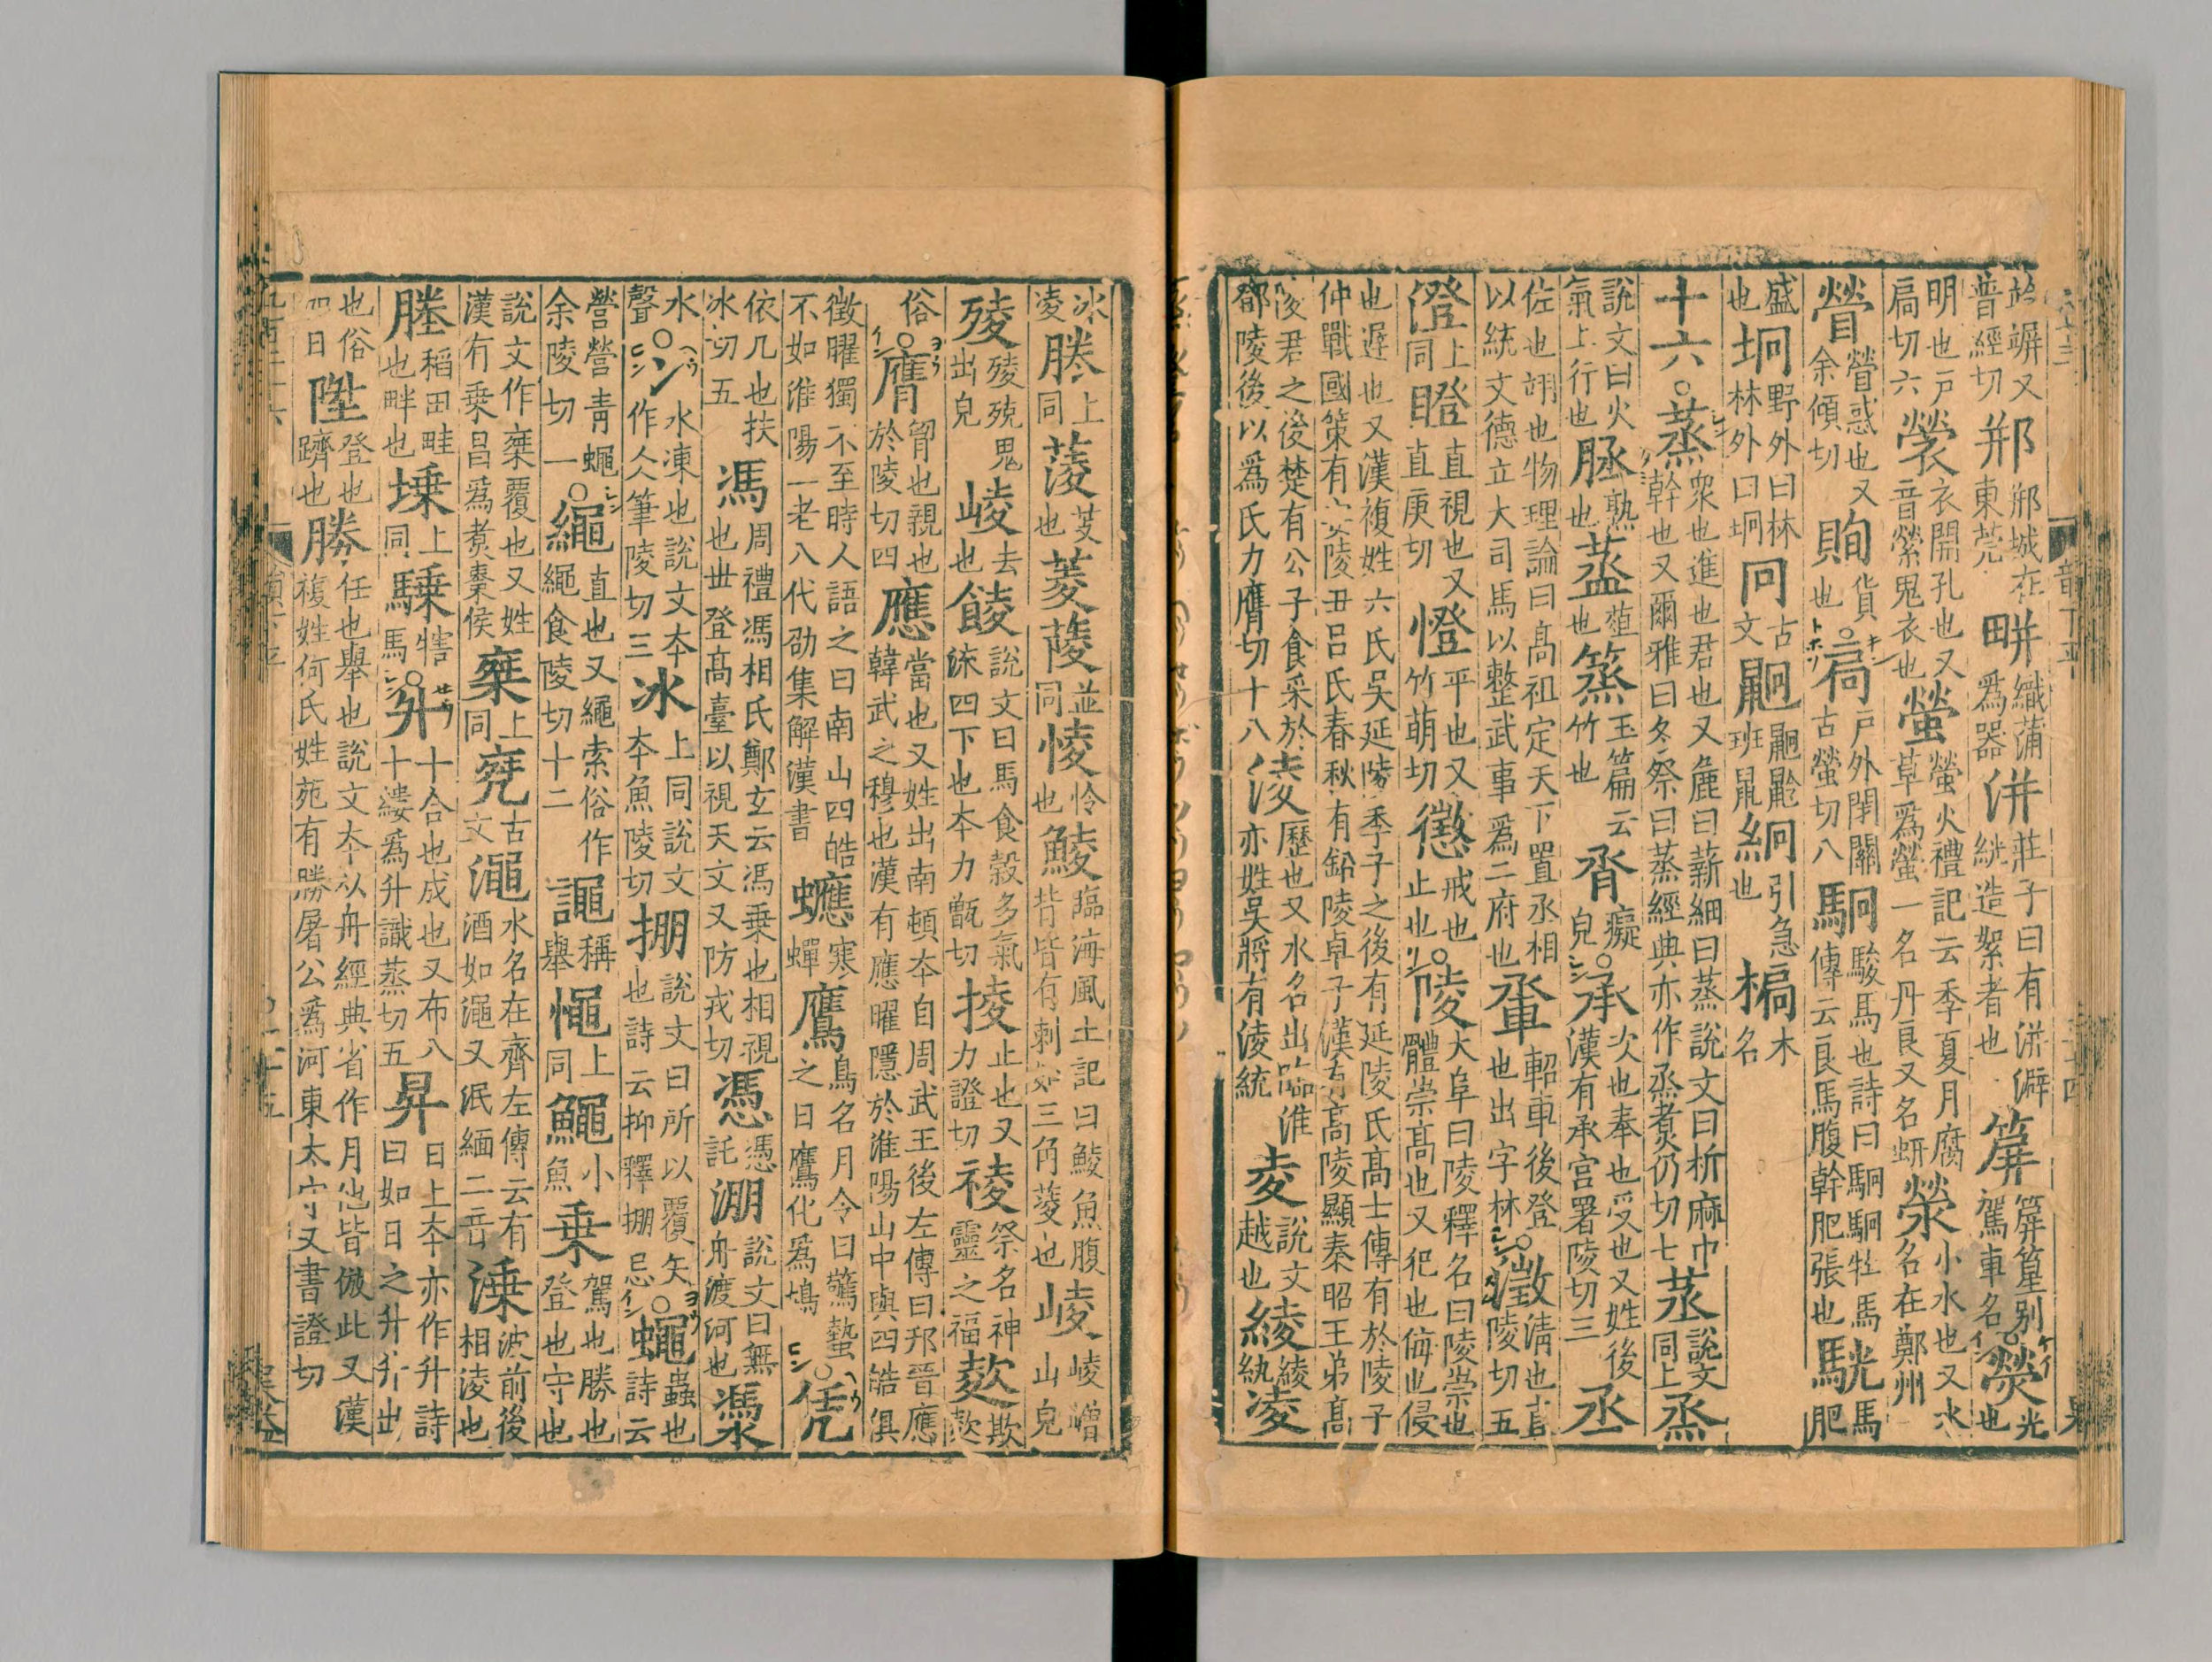 竮又普經切郱郱城在東莞畊織蒲爲器洴莊子曰有洴澼絖造絮者也箳箳篁別駕車名熒光也
明也戶扃切六褮衣開孔也又音縈鬼衣也螢螢火禮記云季夏月腐草爲螢一名丹良又名蚈滎小水也又水名在鄭州
䁝䁝惑也又余傾切貨也扃戶外閉關古螢切八駉駿馬也詩曰駉駉牡馬傳云良馬腹幹肥張也駫馬肥
盛也坰野外曰林林外曰坰冋古文班鼠絅引急也木名
十六蒸衆也進也君也又麁曰薪細曰蒸說文曰析麻中幹也又爾雅曰冬祭曰蒸經典亦作烝煑仍切七𦶟說文同上烝
說文曰火氣上行也脀熟也菹也篜玉篇云竹也癡皃承次也奉也受也又姓後漢有承宮署陵切三丞
佐也翊也物理論曰高祖定天下置丞相以統文德立大司馬以整武事爲二府也軺車後登也出字林澂清也直陵切五
澄上同瞪直視也又直庚切憕平也又竹萌切懲戒也止也陵大阜曰陵釋名曰陵崇也體崇高也又犯也侮也侵
也遲也又漢複姓六氏吳延陵季子之後有延陵氏高士傳有於陵子仲戰國策有安陵丑呂氏春秋有鉛陵卓子漢有高陵顯秦昭王弟高
陵君之後楚有公子食采於鄧陵後以爲氏力膺切十八淩歷也又水名出臨淮亦姓吳將有淩統夌說文越也綾綾紈凌
冰凌䏰上同䔖芰也菱蔆並同㥄怜也鯪臨海風土記曰鯪魚腹背皆有刺如三角菱也崚崚嶒山皃
殑鬼出皃去也餕說文曰馬食穀多氣流四下也本力甑切掕止也又力證切祾祭名神靈之福欺
俗膺胷也親也於陵切四應當也又姓出南頓本自周武王後左傳曰邘晉應韓武之穆也漢有應曜隱於淮陽山中與四皓俱
徵曜獨不至時人語之曰南山四皓不如淮陽一老八代孫劭集解漢書蠯寒蟬鷹鳥名月令曰驚蟄之日鷹化爲鳩凭
依几也扶冰切五馮周禮馮相氏鄭玄云馮乗也相視也丗登高臺以視天文又防戎切憑憑託淜說文曰無舟渡河也
水聲冫水凍也說文本作仌筆陵切三冰上同說文本魚陵切掤說文曰所以覆矢也詩云抑釋掤忌蠅蟲也詩云
營營青蠅余陵切一繩直也又繩索俗作䋲食陵切十二譝稱舉憴上同鱦小魚乗駕也勝也登也守也
說文作椉覆也又姓漢有乗昌爲煑棗侯椉上同古文澠水名在齊左傳云有酒如澠又泯緬二音溗波前後相淩也
塍稻田畦也畔也堘上同騬犗馬升十合也成也又布八十縷爲升識蒸切五昇日上本亦作升詩曰如日之升升出
也俗加日陞登也躋也勝任也舉也說文本从舟經典省作月他皆倣此又漢複姓何氏姓苑有勝屠公爲河東太守又書證切